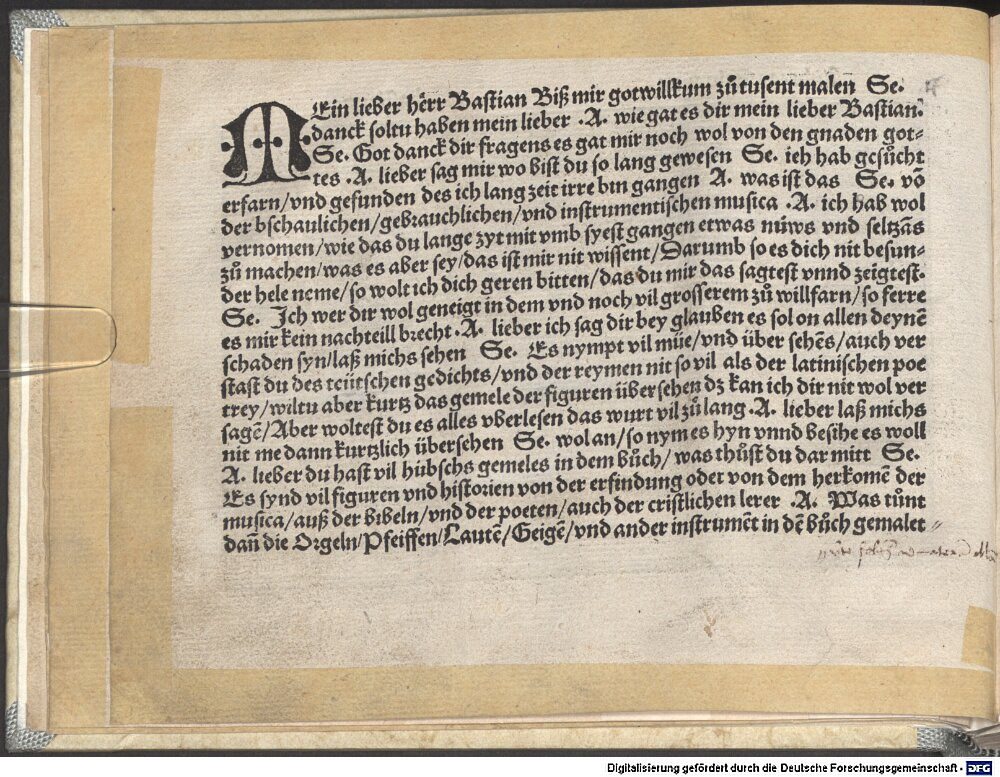 MEin lieber herr Bastian Biß mir gotwillkum zů tusent malen Se.
danck soltu haben mein lieber .A. wie gat es dir mein lieber Bastian.
Se. Got danck dir fragens es gat mir noch wol von den gnaden got⸗
tes .A. lieber sag mir wo bist du so lang gewesen Se. ich hab gesůcht
erfarn/vnd gefunden des ich lang zeit irre bin gangen A. was ist das Se. vō
der bschaulichen/gebrauchlichen/vnd instrumentischen musica .A. ich hab wol
vernomen/wie das du lange zyt mit vmb syest gangen etwas nüws vnd seltzās
zů machen/was es aber sey/das ist mir nit wissent/Darumb so es dich nit besun⸗
der hele neme/so wolt ich dich geren bitten/das du mir das sagtest vnnd zeigtest.
Se. Ich wer dir wol geneigt in dem vnd noch vil grosserem zů willfarn/so ferre
es mir kein nachteill brecht .A. lieber ich sag dir bey glauben es sol on allen deynē
schaden syn/laß michs sehen Se. Es nympt vil müe/vnd über sehēs/auch ver
stast du des teütschen gedichts/vnd der reymen nit so vil als der latinischen poe
trey/wiltu aber kurtz das gemele der figuren über sehen dz kan ich dir nit wol ver
sagē/Aber woltest du es alles vberlesen das wurt vil zů lang .A. lieber laß michs
nit me dann kurtzlich übersehen Se. wol an/so nym es hyn vnnd besihe es woll
A. lieber du hast vil hübschs gemeles in dem bůch/was thůst du dar mitt Se.
Es synd vil figuren vnd historien von der erfindung odet von dem herkomē der
musica/auß der bibeln/vnd der poeten/auch der cristlichen lerer .A. Was tůnt
dan̄ die Orgeln/Pfeiffen/Lautē/Geigē/vnd ander instrumēt in dē bůch gemalet⸗
Digitalisierung gefördert durch die Deutsche Forschungsgemeinschaft - DFG